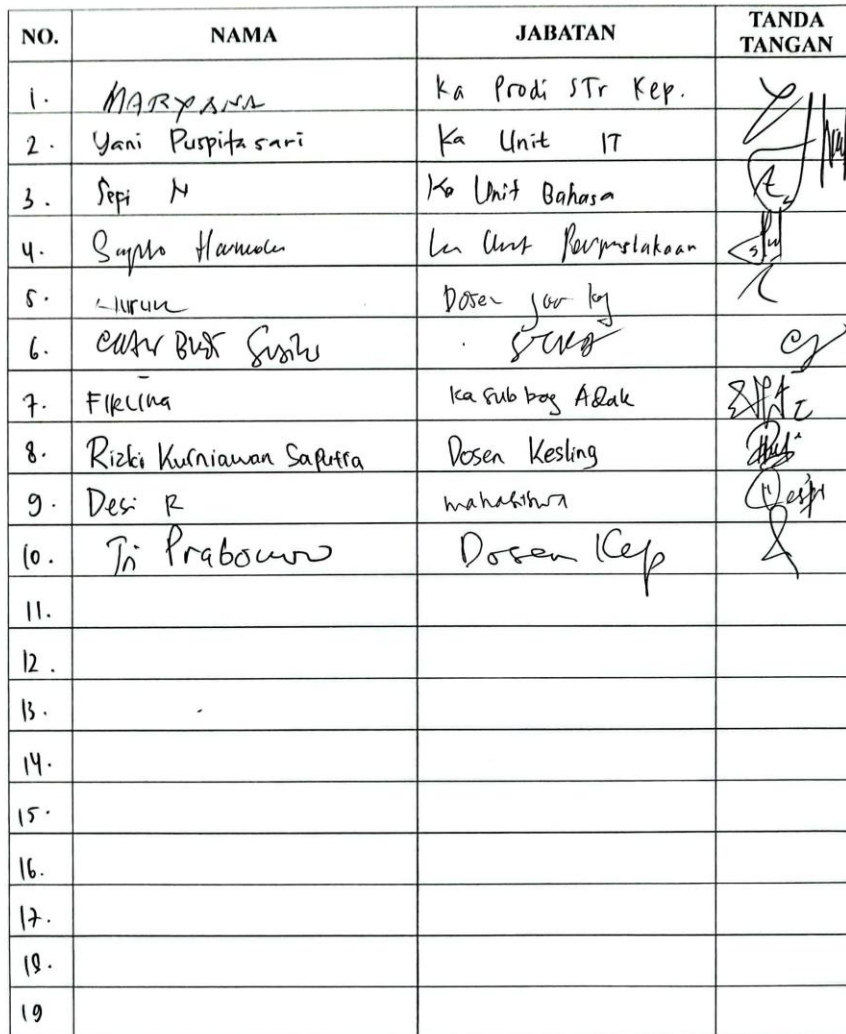 NO. NAMA JABATAN TANDA TANGAN
1. MARYANA Ka Prodi STr Kep.
2. Yani Puspitasari Ka Unit IT
3. Sepi N Ka Unit Bahasa
4. Ka Unit Perpustakaan
5. Dosen
6. Catur Budi Susilo
7. Fiklina Kasubbag Adak
8. Rizki Kurniawan Saputra Dosen Kesling
9. Desi R mahasiswa
10. Tri Prabowo Dosen Kep
11.
12.
13.
14.
15.
16.
17.
18.
19